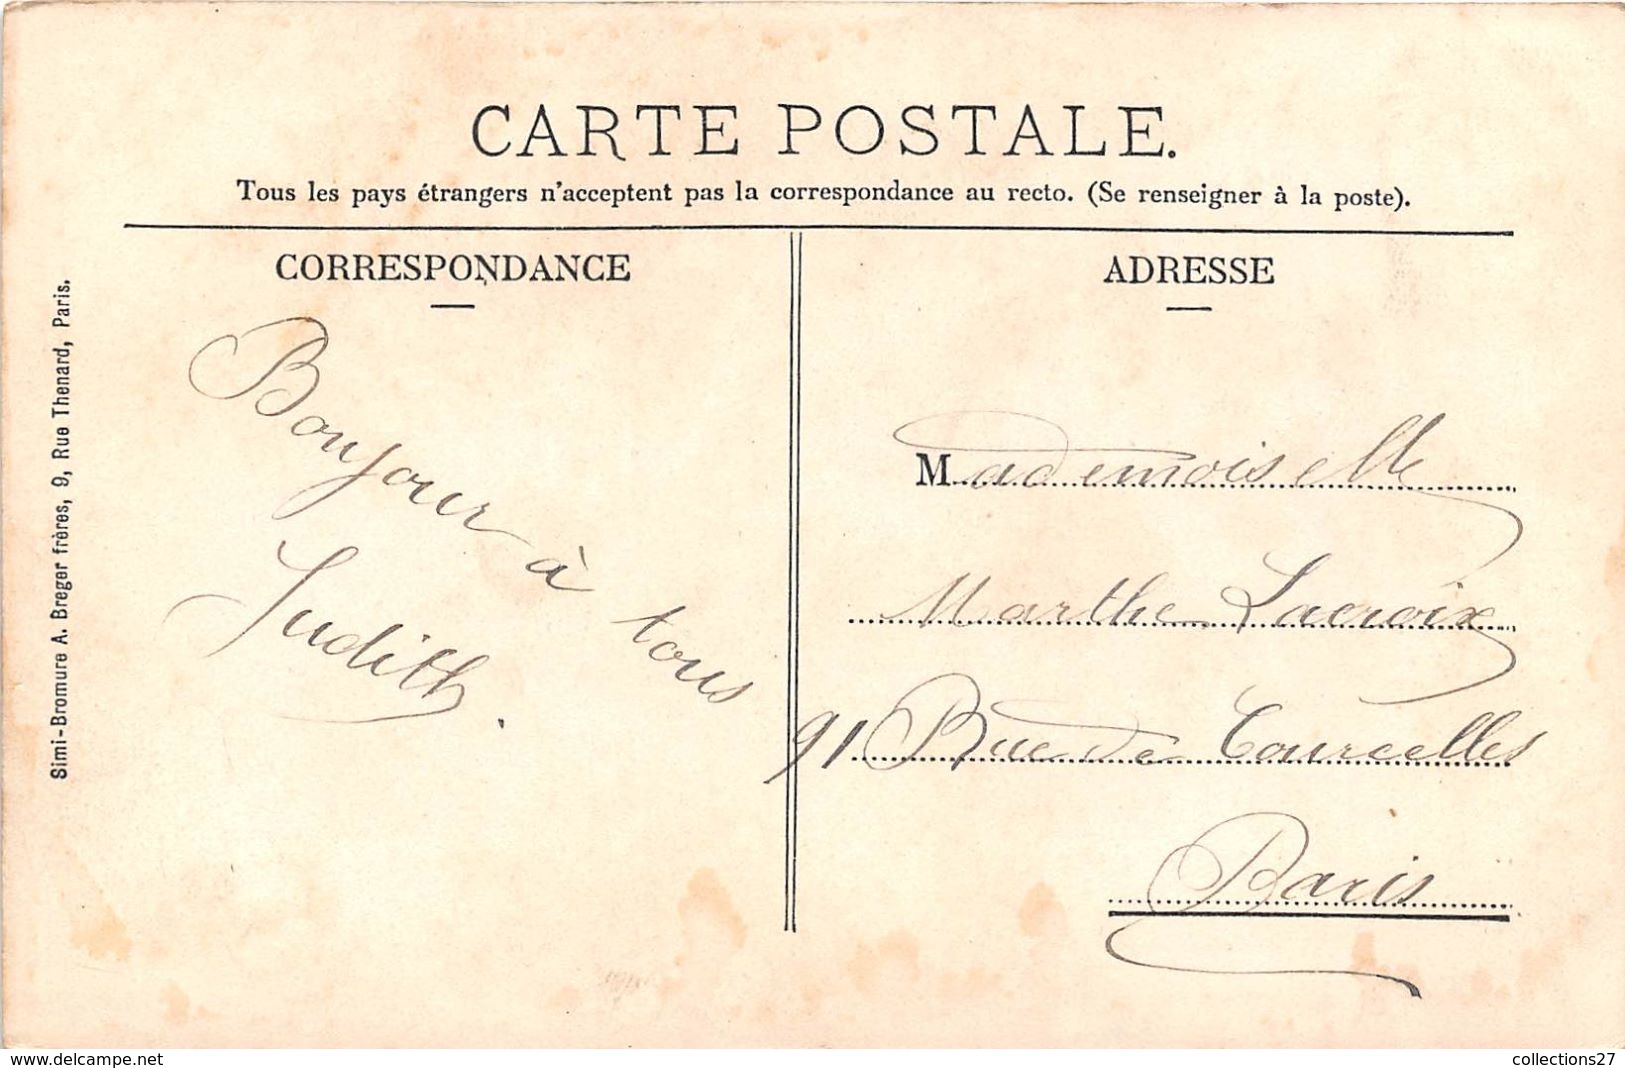 CARTE POSTALE.
Tous les pays étrangers n'acceptent pas la correspondance au recto. (Se renseigner à la poste).
CORRESPONDANCE
Bonjour à tous
Judith.
ADRESSE
Mademoiselle
Marthe Lacroix
91 Rue de Courcelles
Paris
Simi-Bromure A. Breger frères, 9, Rue Thenard, Paris.
www.delcampe.net
collections27